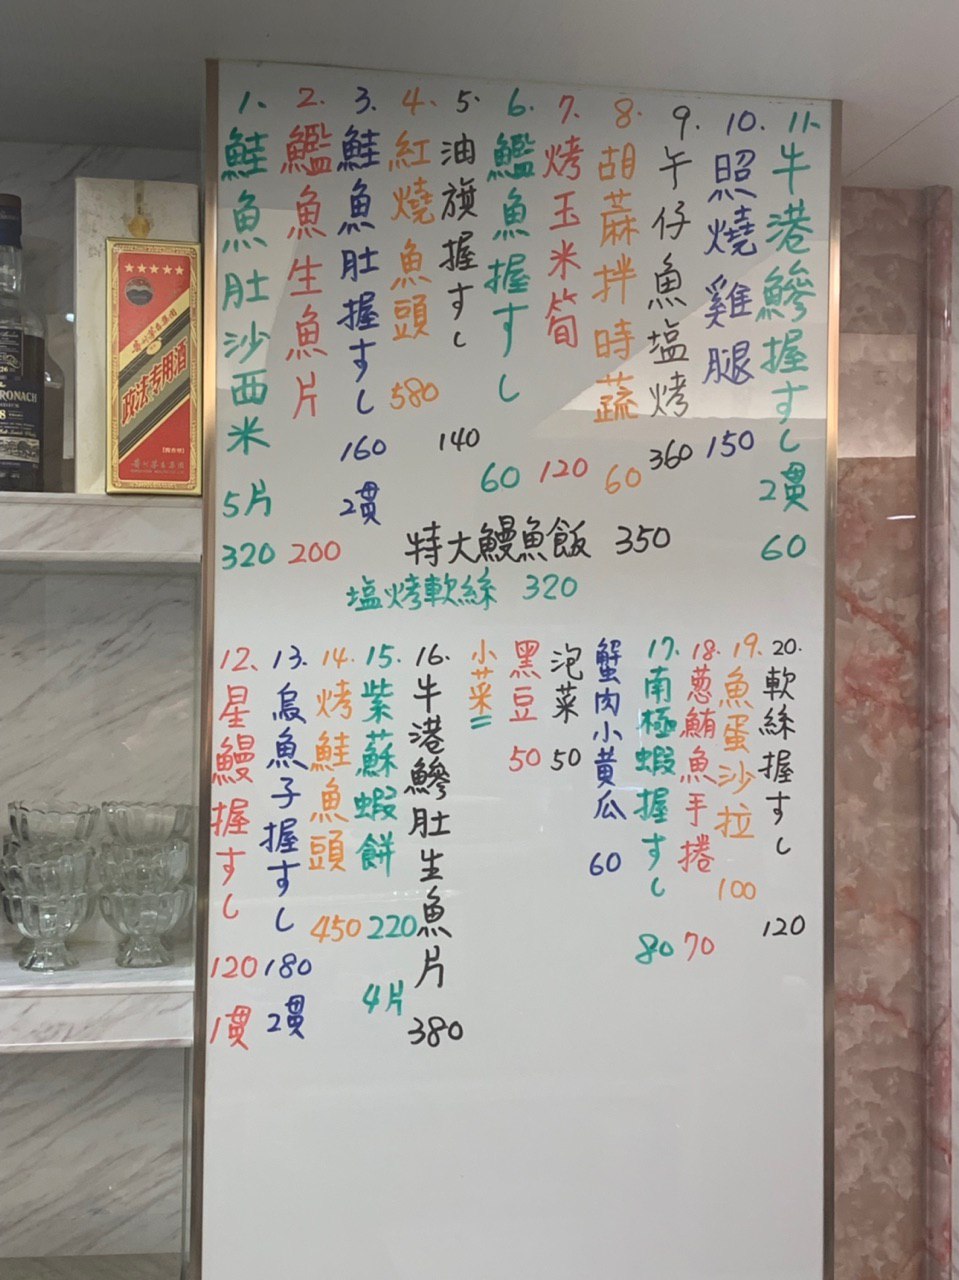 1、鮭魚肚沙西米 5片 320
2. 鱸魚生魚片 200
3. 鮭魚肚握すし 160 2貫
4. 紅燒魚頭 580
5. 油旗握すし 140
6. 鱸魚握すし 60
7. 烤玉米筍 120
8. 胡蔴拌時蔬 60
9. 午仔魚塩烤 360
10. 照燒雞腿 150
11、牛港鰺握すし 2貫 60
特大鰻魚飯 350
塩烤軟絲 320
12、星鰻握すし 120 1貫
13. 烏魚子握すし 180 2貫
14. 烤鮭魚頭 450
15. 紫蘇蝦餅 220 4片
16. 牛港鰺肚生魚片 380
小菜=
黑豆 50
泡菜 50
蟹肉小黃瓜 60
17. 南極蝦握すし 80
18. 蔥鮪魚手捲 70
19. 魚蛋沙拉 100
20. 軟絲握すし 120
政法专用酒
RONACH